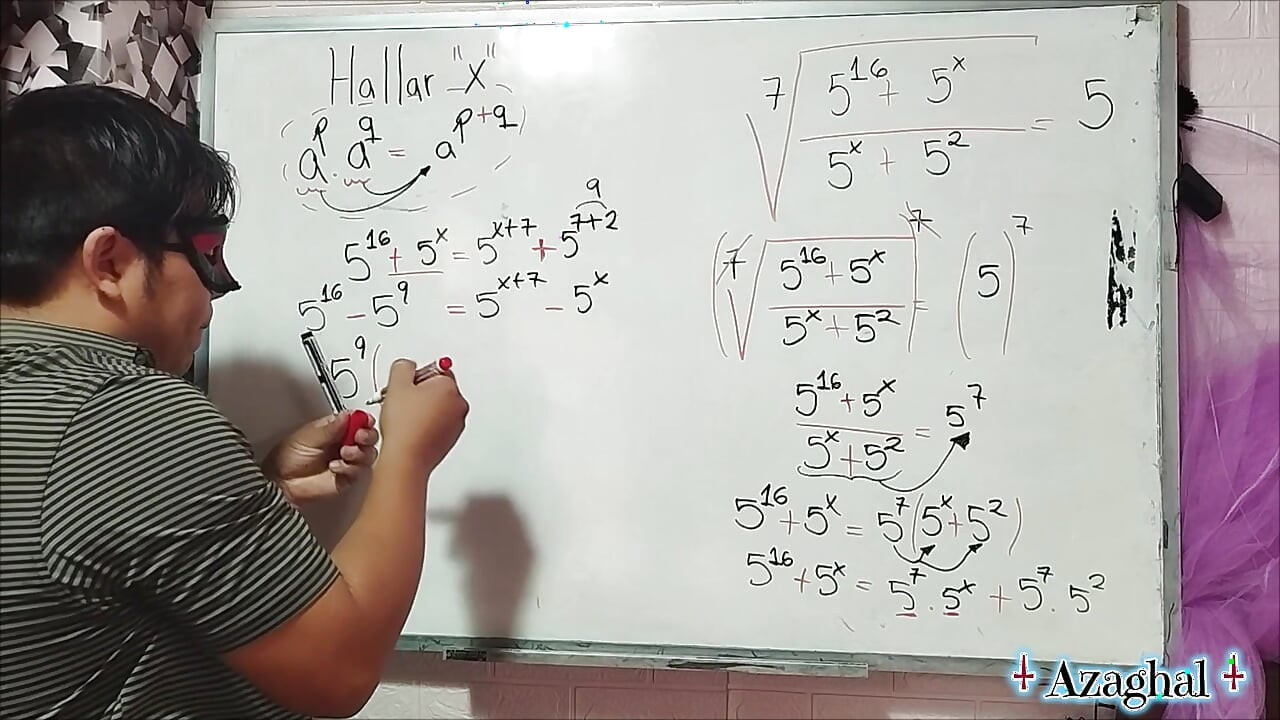 Hallar "x"
a^p . a^q = a^(p+q)
5^16 + 5^x = 5^(x+7) + 5^(7+2) 9
5^16 - 5^9 = 5^(x+7) - 5^x
5^9 (
7√((5^16 + 5^x)/(5^x + 5^2)) = 5
(7√((5^16 + 5^x)/(5^x + 5^2)))^7 = (5)^7
(5^16 + 5^x)/(5^x + 5^2) = 5^7
5^16 + 5^x = 5^7 (5^x + 5^2)
5^16 + 5^x = 5^7 . 5^x + 5^7 . 5^2
Azaghal